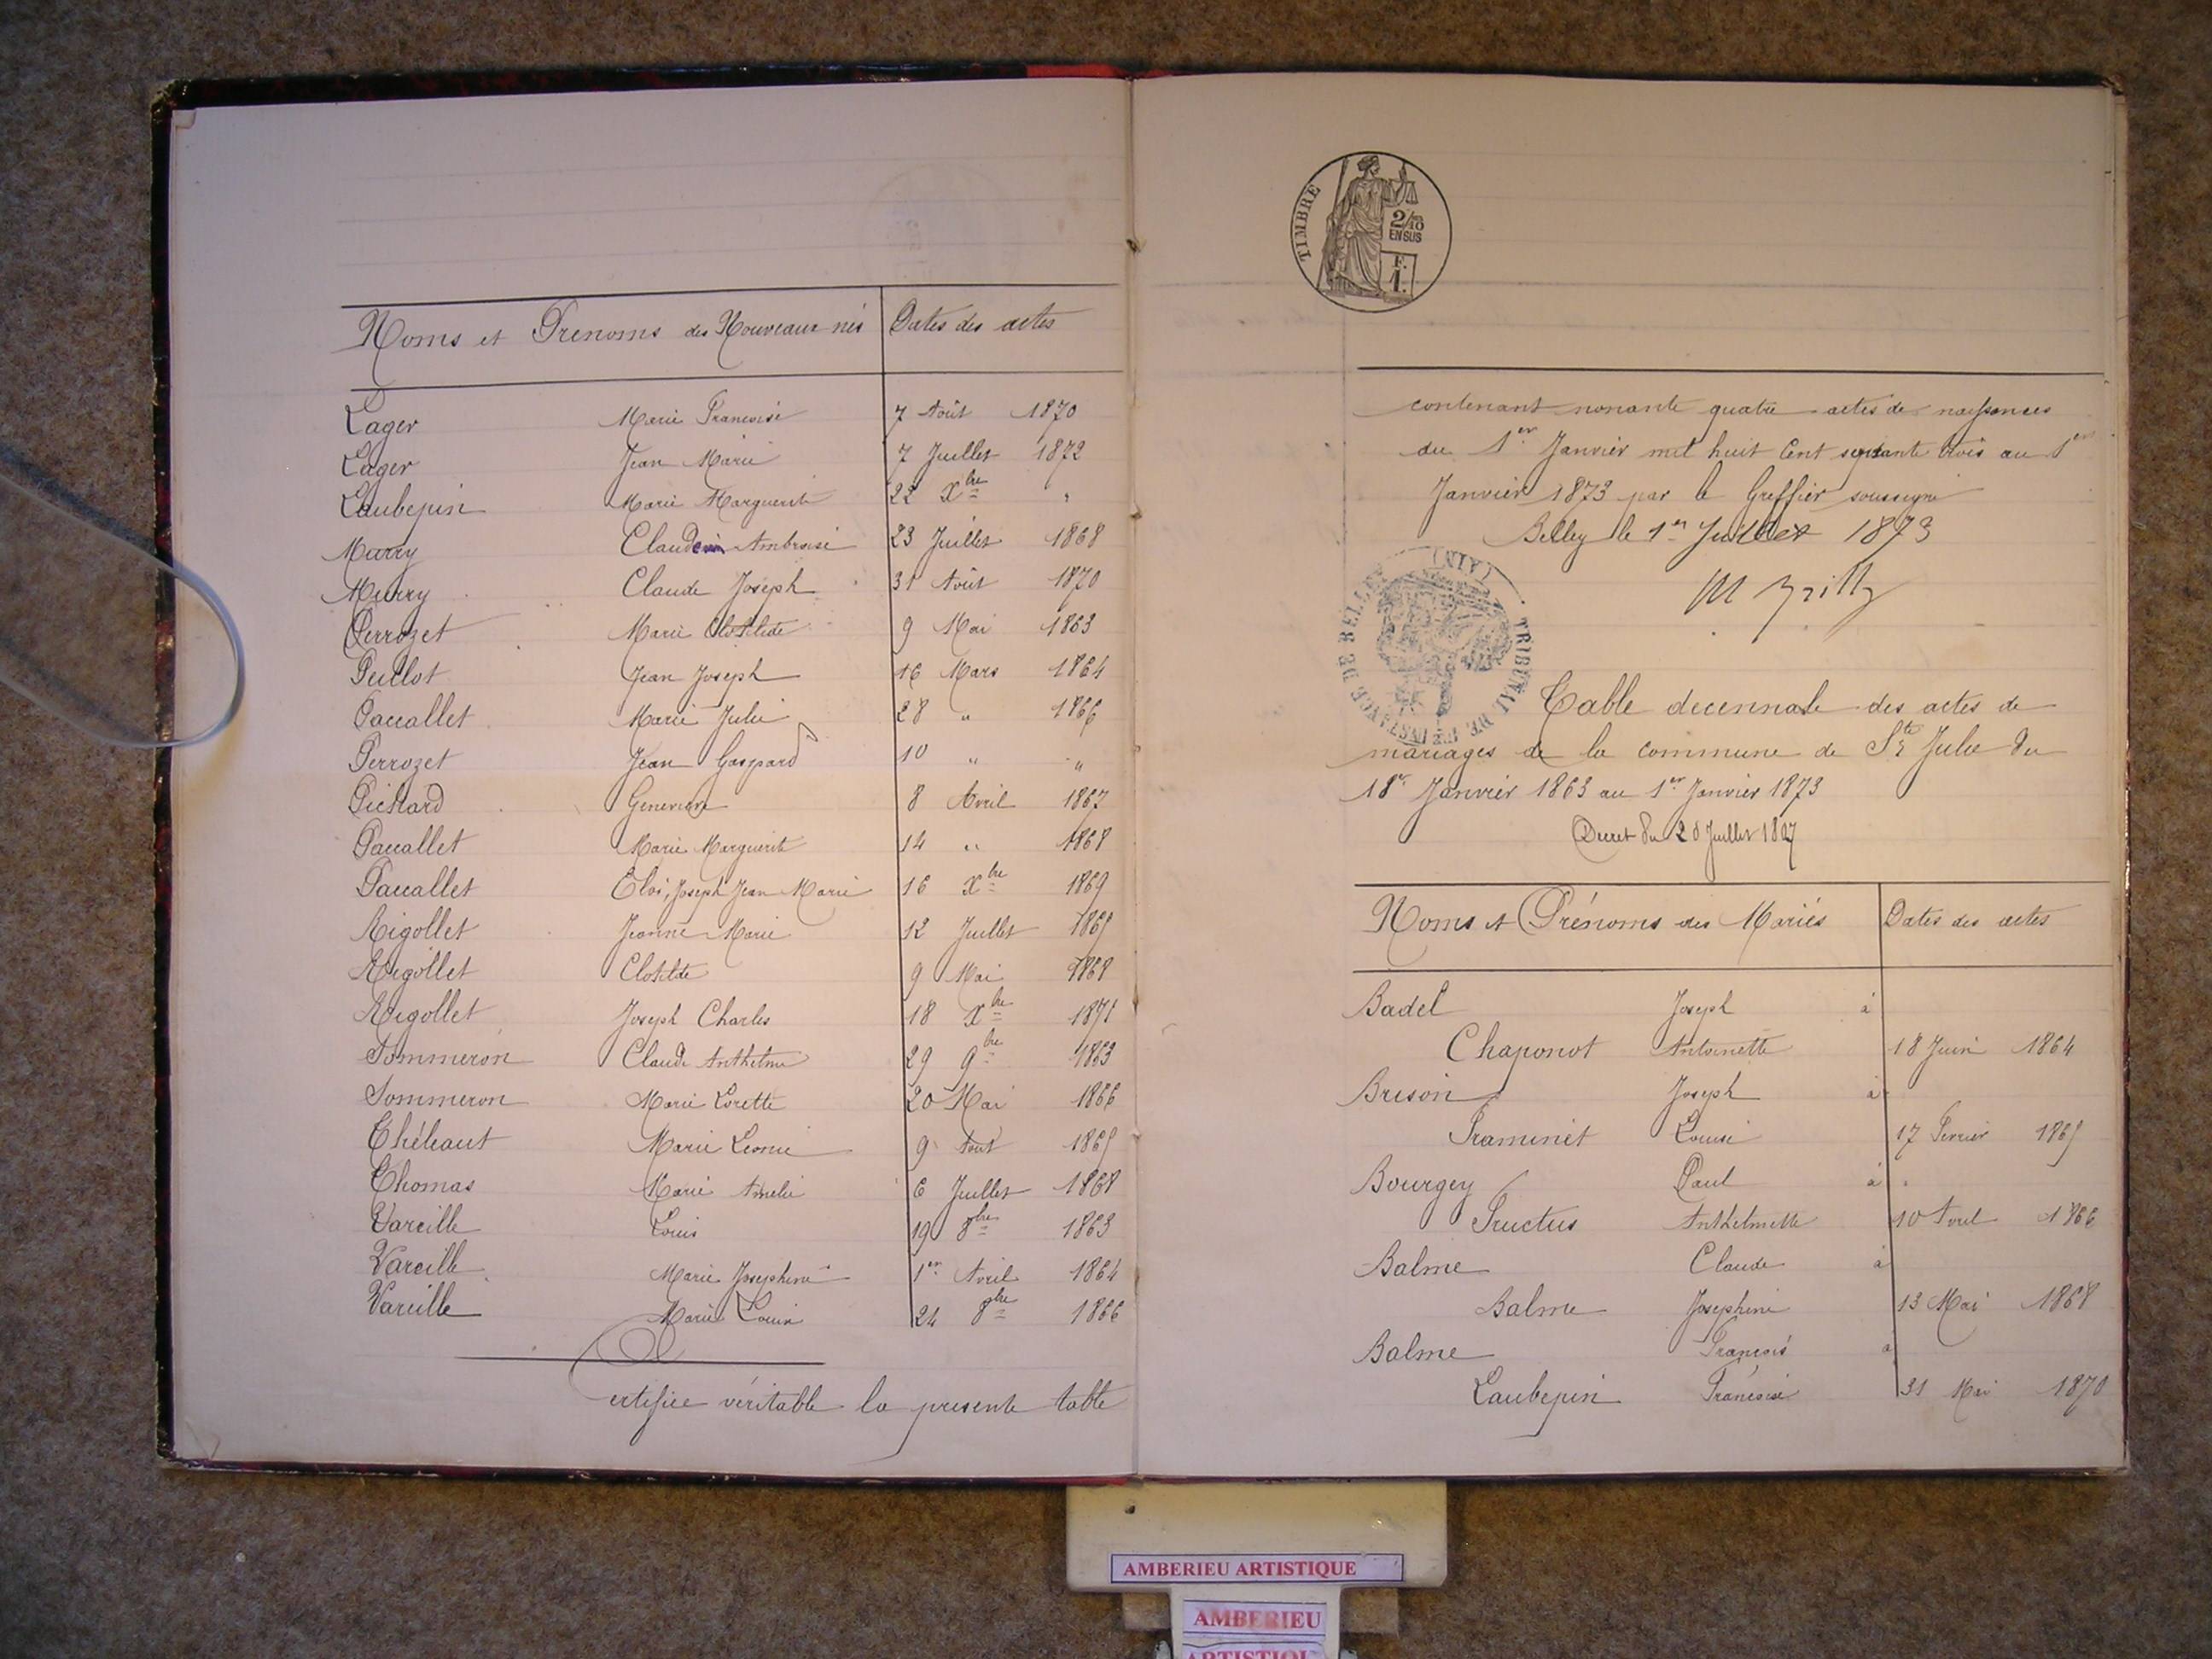 Noms et Prenoms des Nouveaux nés Dates des actes
Lager Marie Francoise 7 Août 1870
Lager Jean Marie 7 Juillet 1872
Laubepin Marie Marguerite 22 Xbre "
Marry Claude Ambroise 23 Juillet 1868
Murry Claude Joseph 31 Août 1870
Perrozet Marie Clotilde 9 Mai 1863
Peillot Jean Joseph 16 Mars 1864
Paccallet Marie Julie 28 " 1866
Perrozet Jean Gaspard 10 " "
Pichard Genevieve 8 Avril 1867
Paccallet Marie Marguerite 14 " 1868
Paccallet Eloi, Joseph Jean Marie 16 Xbre 1869
Rigollet Jeanne Marie 12 Juillet 1865
Rigollet Clotilde 9 Mai 1868
Rigollet Joseph Charles 18 Xbre 1871
Sommeron Claude Anthelme 29 9bre 1863
Sommeron Marie Lorette 20 Mai 1866
Marie Leonie 9 Aout 1865
Thomas Marie Amelie 6 Juillet 1868
Vareille Louis 19 8bre 1863
Vareille Marie Josephine 1er Avril 1864
Vareille Marie Louise 24 8bre 1866
Certifiée véritable la presente table
TIMBRE
2/10
EN SUS
F.
1.
contenant nonante quatre actes de naissances
du 1er Janvier mil huit Cent soixante trois au 1er
Janvier 1873 par le Greffier soussigné
Belley le 1er Juillet 1873
TRIBUNAL DE 1RE INSTANCE DE BELLEY (AIN)
Table decennale des actes de
mariages de la commune de Ste Julie du
1er Janvier 1863 au 1er Janvier 1873
Decret du 20 Juillet 1807
Noms et Prénoms des Mariés Dates des actes
Badel Joseph à
Chaponot Antoinette 18 Juin 1864
Brison Joseph à
Traminet Louise 17 Fevrier 1865
Bourgey Paul à
Fructus Anthelmette 10 Avril 1866
Balme Claude à
Balme Josephine 13 Mai 1868
Balme Francois à
Laubepin Francoise 31 Mai 1870
AMBERIEU ARTISTIQUE
AMBERIEU